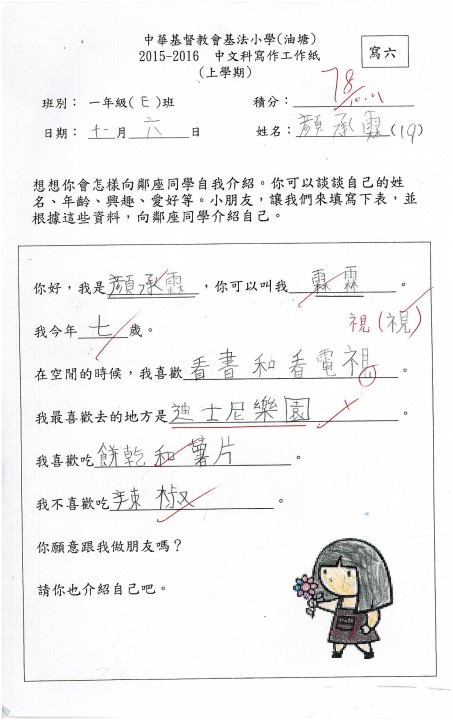 中華基督教會基法小學(油塘)
寫六
2015-2016 中文科寫作工作紙
(上學期)
班別： 一年級(E)班 積分：78
日期： 十一月 六 日 姓名：顏承霖(19)
想想你會怎樣向鄰座同學自我介紹。你可以談談自己的姓
名、年齡、興趣、愛好等。小朋友，讓我們來填寫下表，並
根據這些資料，向鄰座同學介紹自己。
你好，我是顏承霖，你可以叫我霖霖。
我今年七歲。 視(視)
在空閒的時候，我喜歡看書和看電視。
我最喜歡去的地方是迪士尼樂園。
我喜歡吃餅乾和薯片。
我不喜歡吃辣椒。
你願意跟我做朋友嗎？
請你也介紹自己吧。